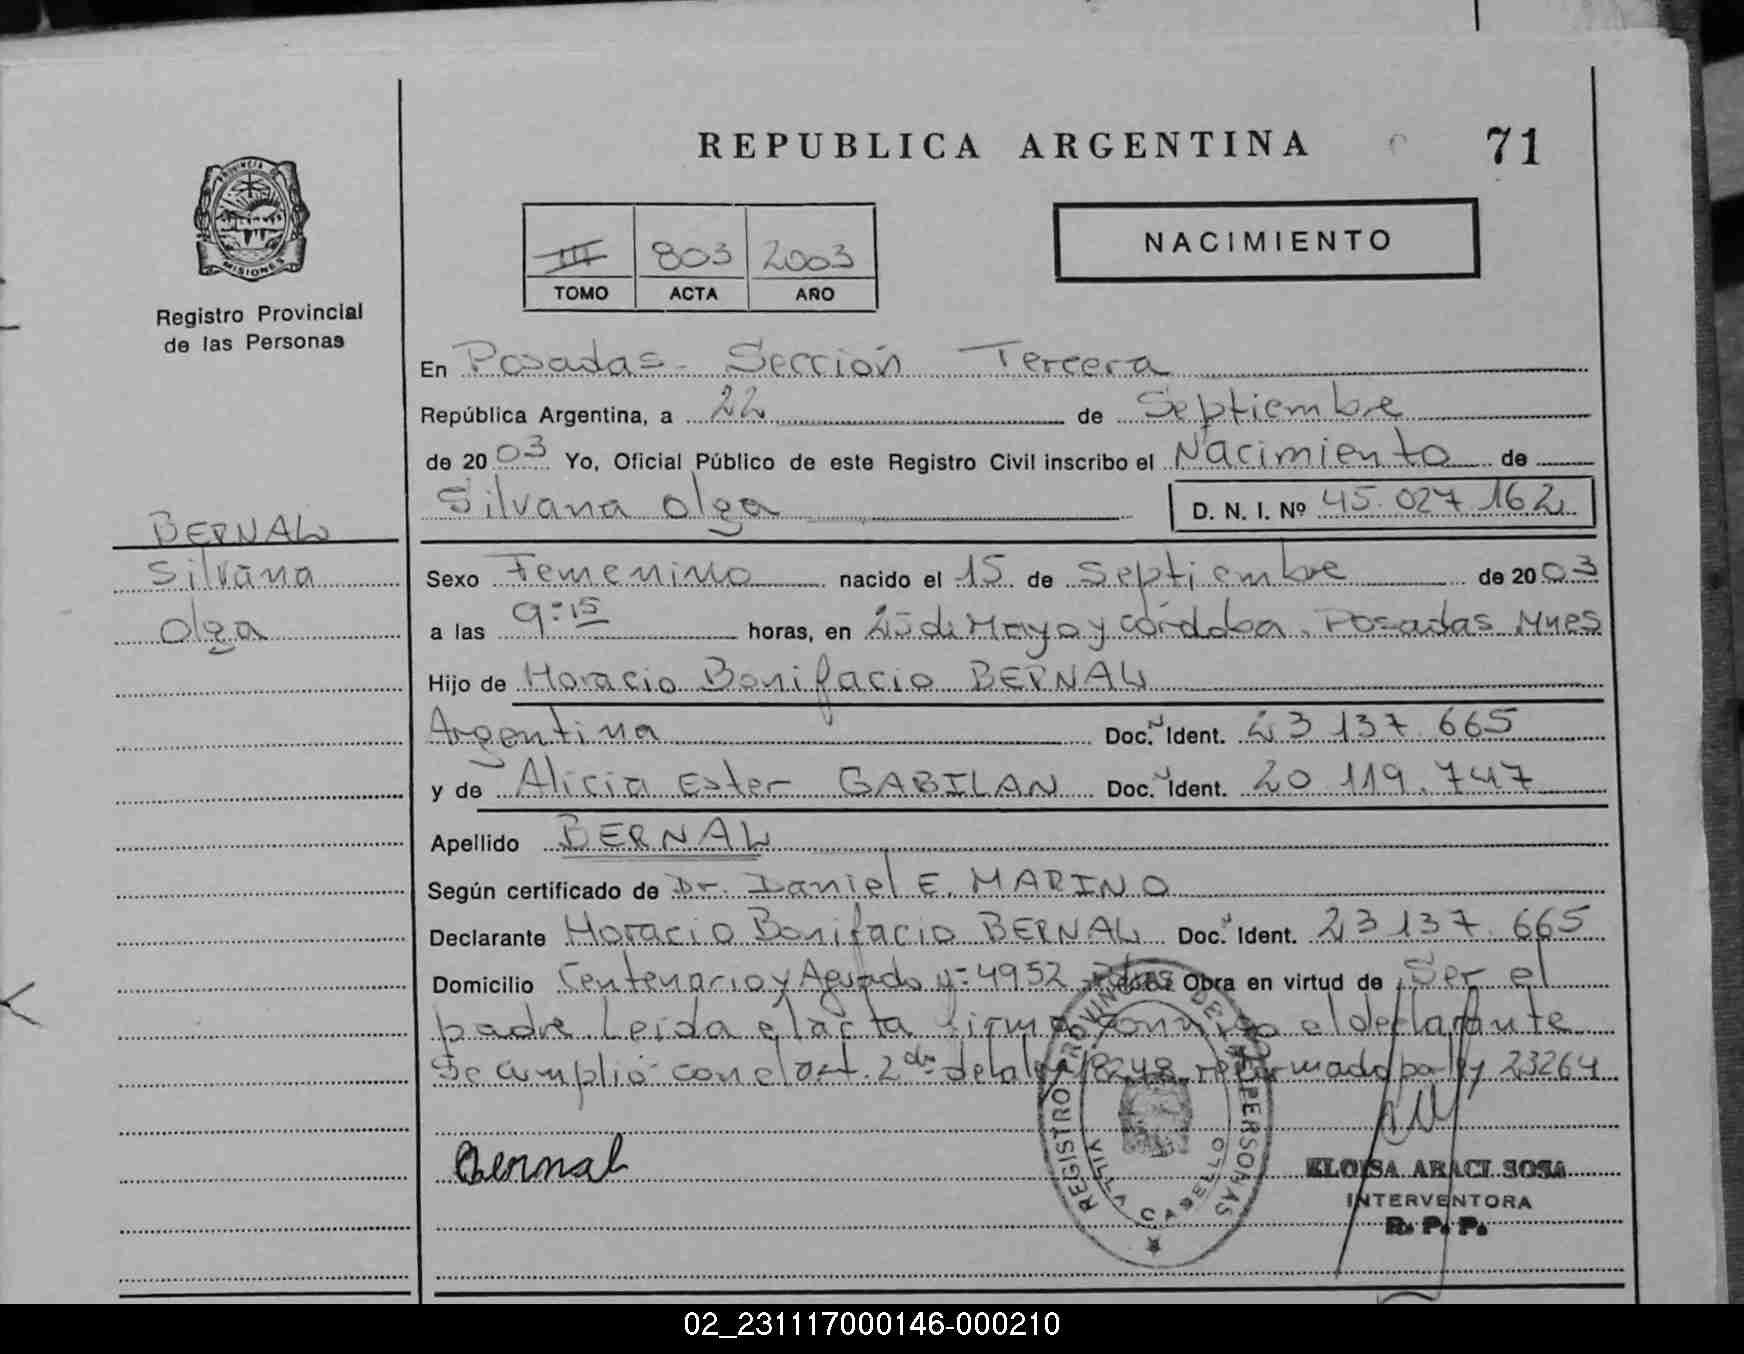 REPUBLICA ARGENTINA
71
PROVINCIA DE
MISIONES
Registro Provincial
de las Personas
III 803 2003
TOMO ACTA AÑO
NACIMIENTO
En Posadas - Sección Tercera
República Argentina, a 22 de Septiembre
de 2003 Yo, Oficial Público de este Registro Civil inscribo el Nacimiento de
Silvana Olga D. N. I. Nº 45.027 162
BERNAL
Silvana
Olga
Sexo Femenino nacido el 15 de Septiembre de 2003
a las 9:15 horas, en 25 de Mayo y Córdoba. Posadas Mnes
Hijo de Horacio Bonifacio BERNAL
Argentina Doc. Ident. 23 137.665
y de Alicia Ester GABILAN Doc. Ident. 20 119.747
Apellido BERNAL
Según certificado de Dr. Daniel E. MARINO
Declarante Horacio Bonifacio BERNAL Doc. Ident. 23 137.665
Domicilio Centenario y Aguado Nº 4952 Pdas Obra en virtud de Ser el
padre Leída el acta firma conmigo el declarante
Se cumplió con el art. 2do de la ley 18248 reformado por ley 23264
Bernal
REGISTRO PROVINCIAL DE LAS PERSONAS
VILLA CABELLO
ELOISA ARACI SOSA
INTERVENTORA
R. P. P.
02_231117000146-000210